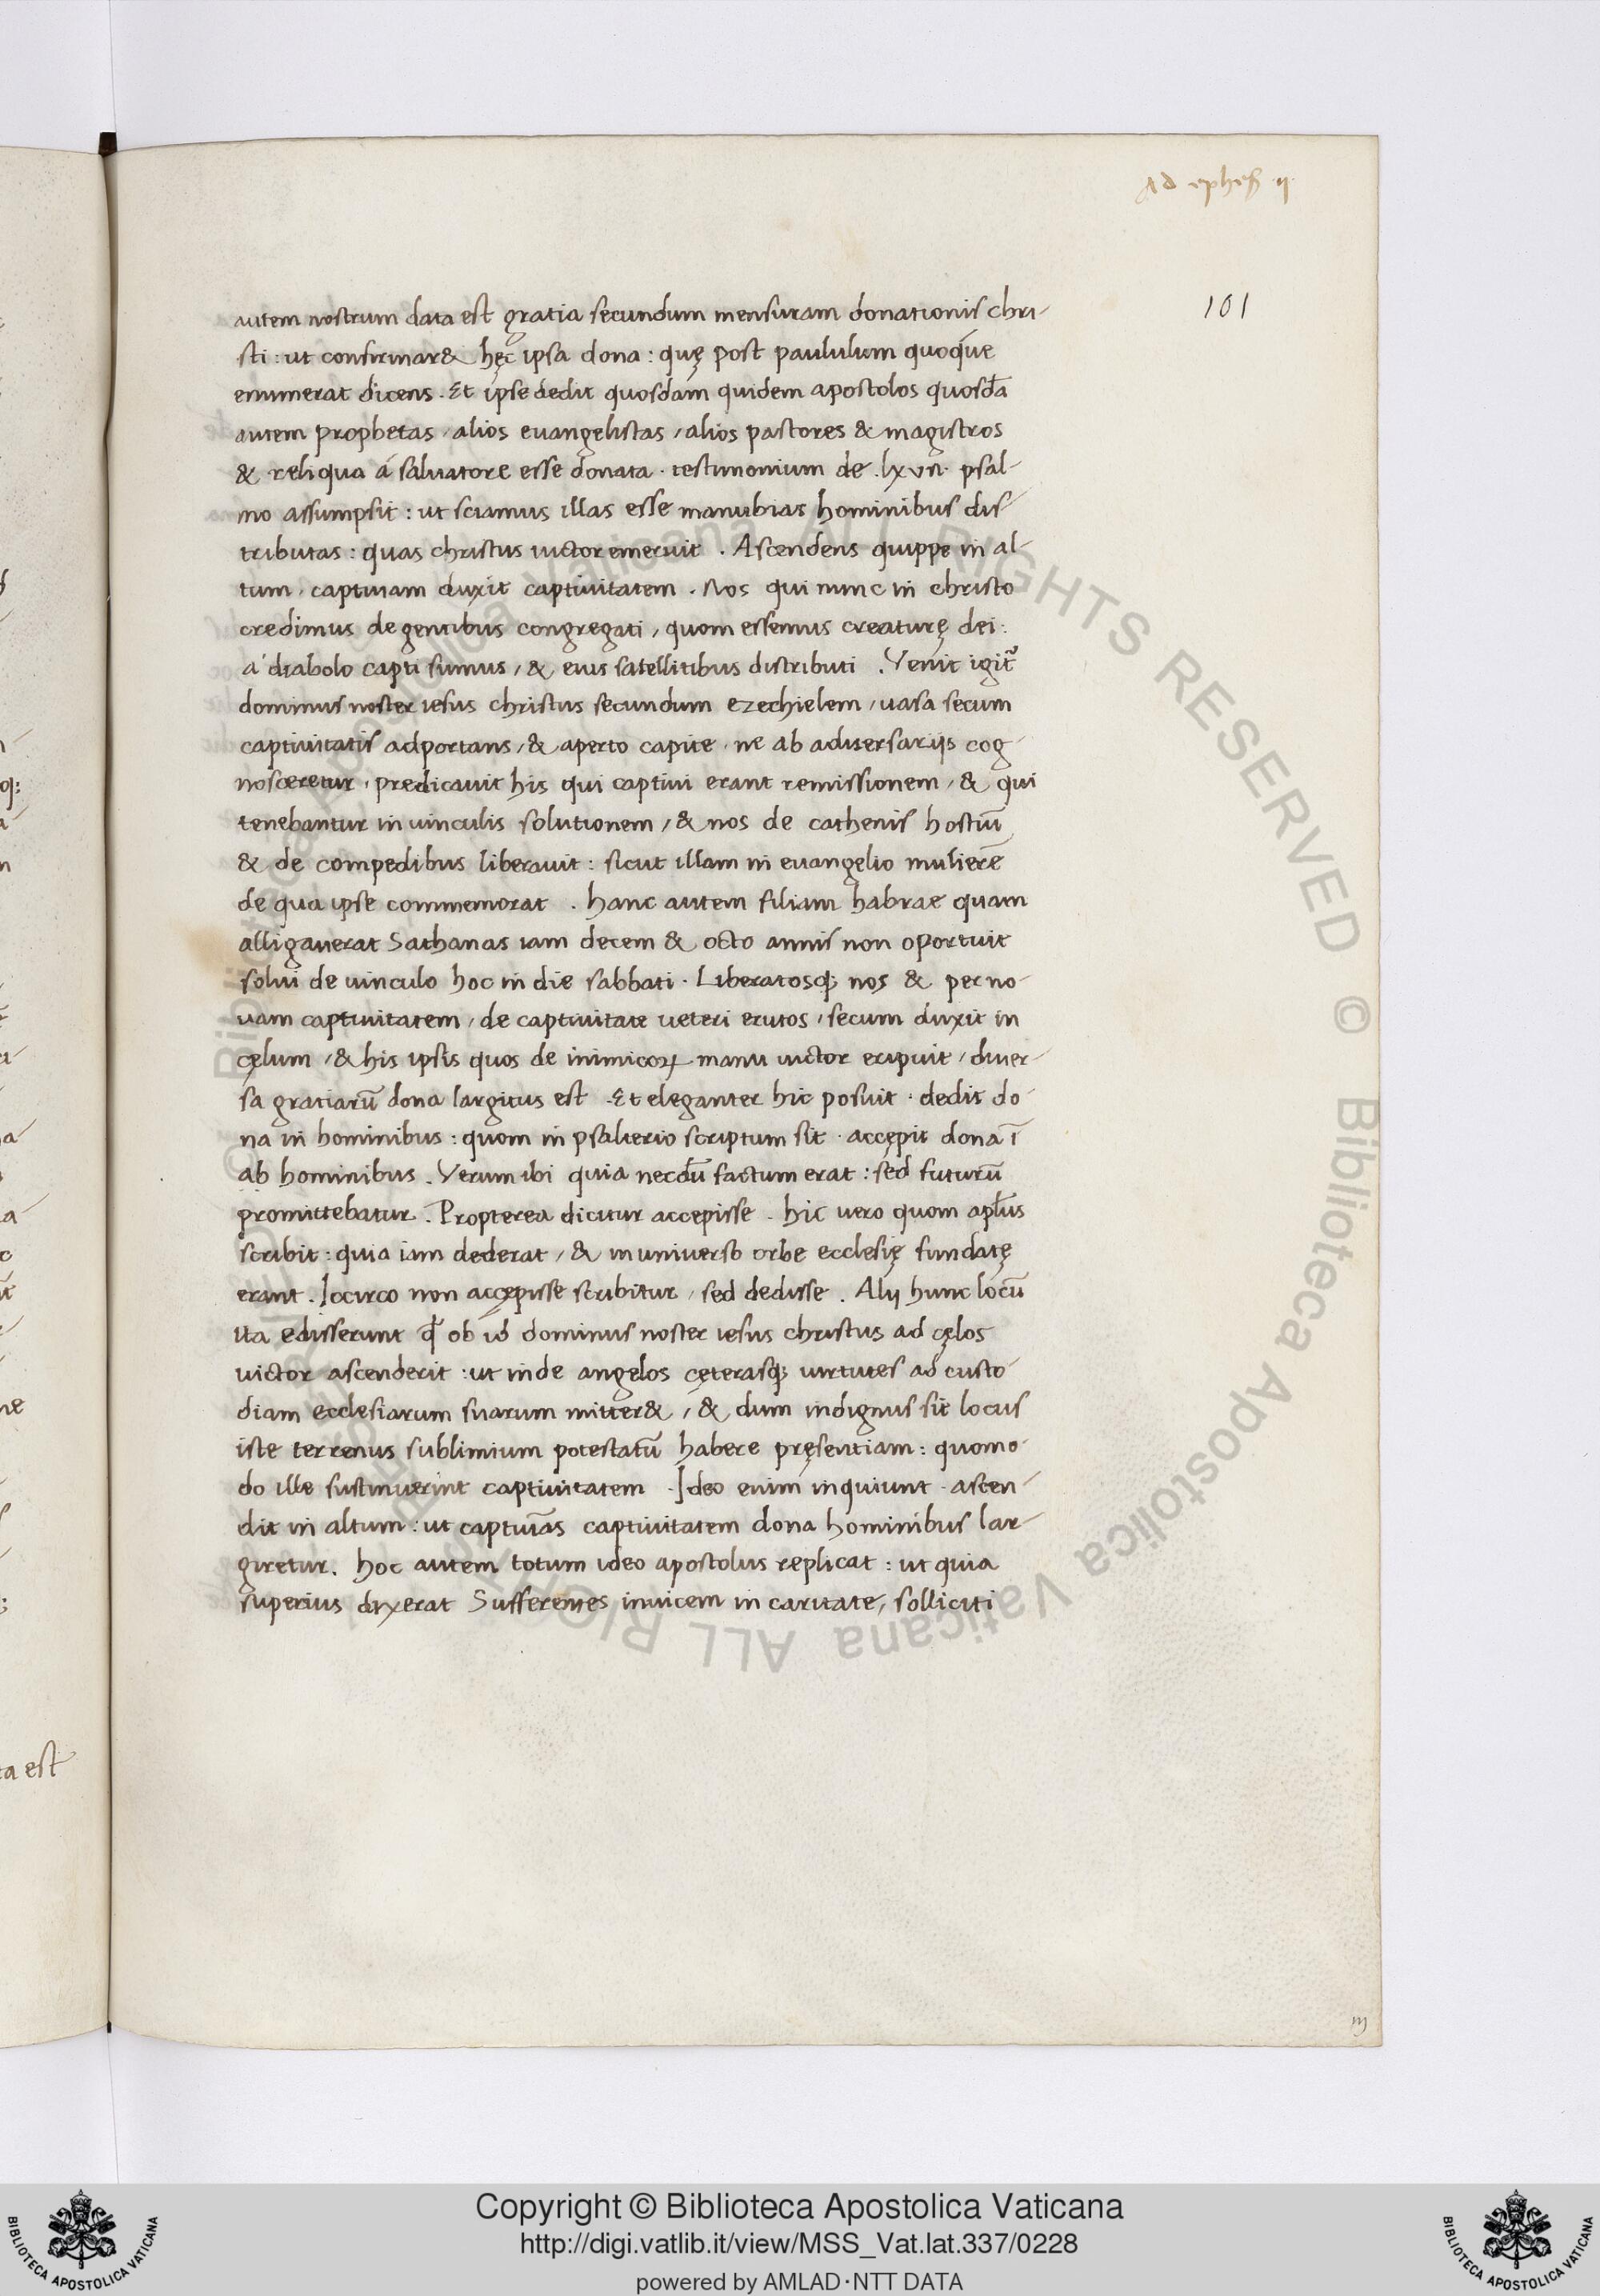 Ad ephes̄ .ij.
101
autem nostrum data est gratia secundum mensuram donationis chri-
sti : ut confirmar& hęc ipsa dona : quę post paululum quoque
enumerat dicens . Et ipse dedit quosdam quidem apostolos quosdā
autem prophetas / alios euangelistas / alios pastores & magistros
& reliqua á saluatore esse donata . testimonium de . lxvii . psal-
mo assumpsit : ut sciamus illas esse manubias hominibus dis-
tributas : quas christus uictor emeruit . Ascendens quippe in al-
tum . captiuam duxit captiuitatem . Nos qui nunc in christo
credimus de gentibus congregati , quom essemus creaturę dei :
a diabolo capti sumus , & eius satellitibus distributi . Venit igit᷑
dominus noster iesus christus secundum ezechielem / uasa secum
captiuitatis adportans , & aperto capite . ne ab aduersarijs cog-
nosceretur , predicauit his qui captiui erant remissionem , & qui
tenebantur in uinculis solutionem , & nos de cathenis hostiū
& de compedibus liberauit : sicut illam in euangelio mulierē
de qua ipse commemorat . hanc autem filiam habrae quam
alligauerat Sathanas iam decem & octo annis non oportuit
solui de uinculo hoc in die sabbati . Liberatosq; nos & per no-
uam captiuitatem , de captiuitate ueteri erutos , secum duxit in
cęlum , & his ipsis quos de inimicoꝝ manu uictor eripuit / diuer-
sa gratiarū dona largitus est . Et eleganter hic posuit . dedit do-
na in hominibus : quom in psalterio scriptum sit . accępit dona ī
ab hominibus . Verum ibi quia necdū factum erat : sed futurū
promittebatur . Propterea dicitur accepisse . hic uero quom apl̄us
scribit : quia iam dederat , & in uniuerso orbe ecclesię fundatę
erant . Iccirco non accępisse scribitur , sed dedisse . Alij hunc locū
ita edisserunt ꝙ ob id dominus noster iesus christus ad cęlos
uictor ascenderit : ut inde angelos cęterasq; uirtutes ad custo-
diam ecclesiarum suarum mitter& , & dum indignus sit locus
iste terrenus sublimium potestatū habere pręsentiam : quomo-
do ille sustinuerint captiuitatem . Ideo enim inquiunt . ascen-
dit in altum : ut captiuās captiuitatem dona hominibus lar-
giretur . hoc autem totum ideo apostolus replicat : ut quia
superius dixerat Sufferentes inuicem in caritate , solliciti
a est
Copyright © Biblioteca Apostolica Vaticana
http://digi.vatlib.it/view/MSS_Vat.lat.337/0228
powered by AMLAD·NTT DATA
BIBLIOTECA APOSTOLICA VATICANA
BIBLIOTECA APOSTOLICA VATICANA